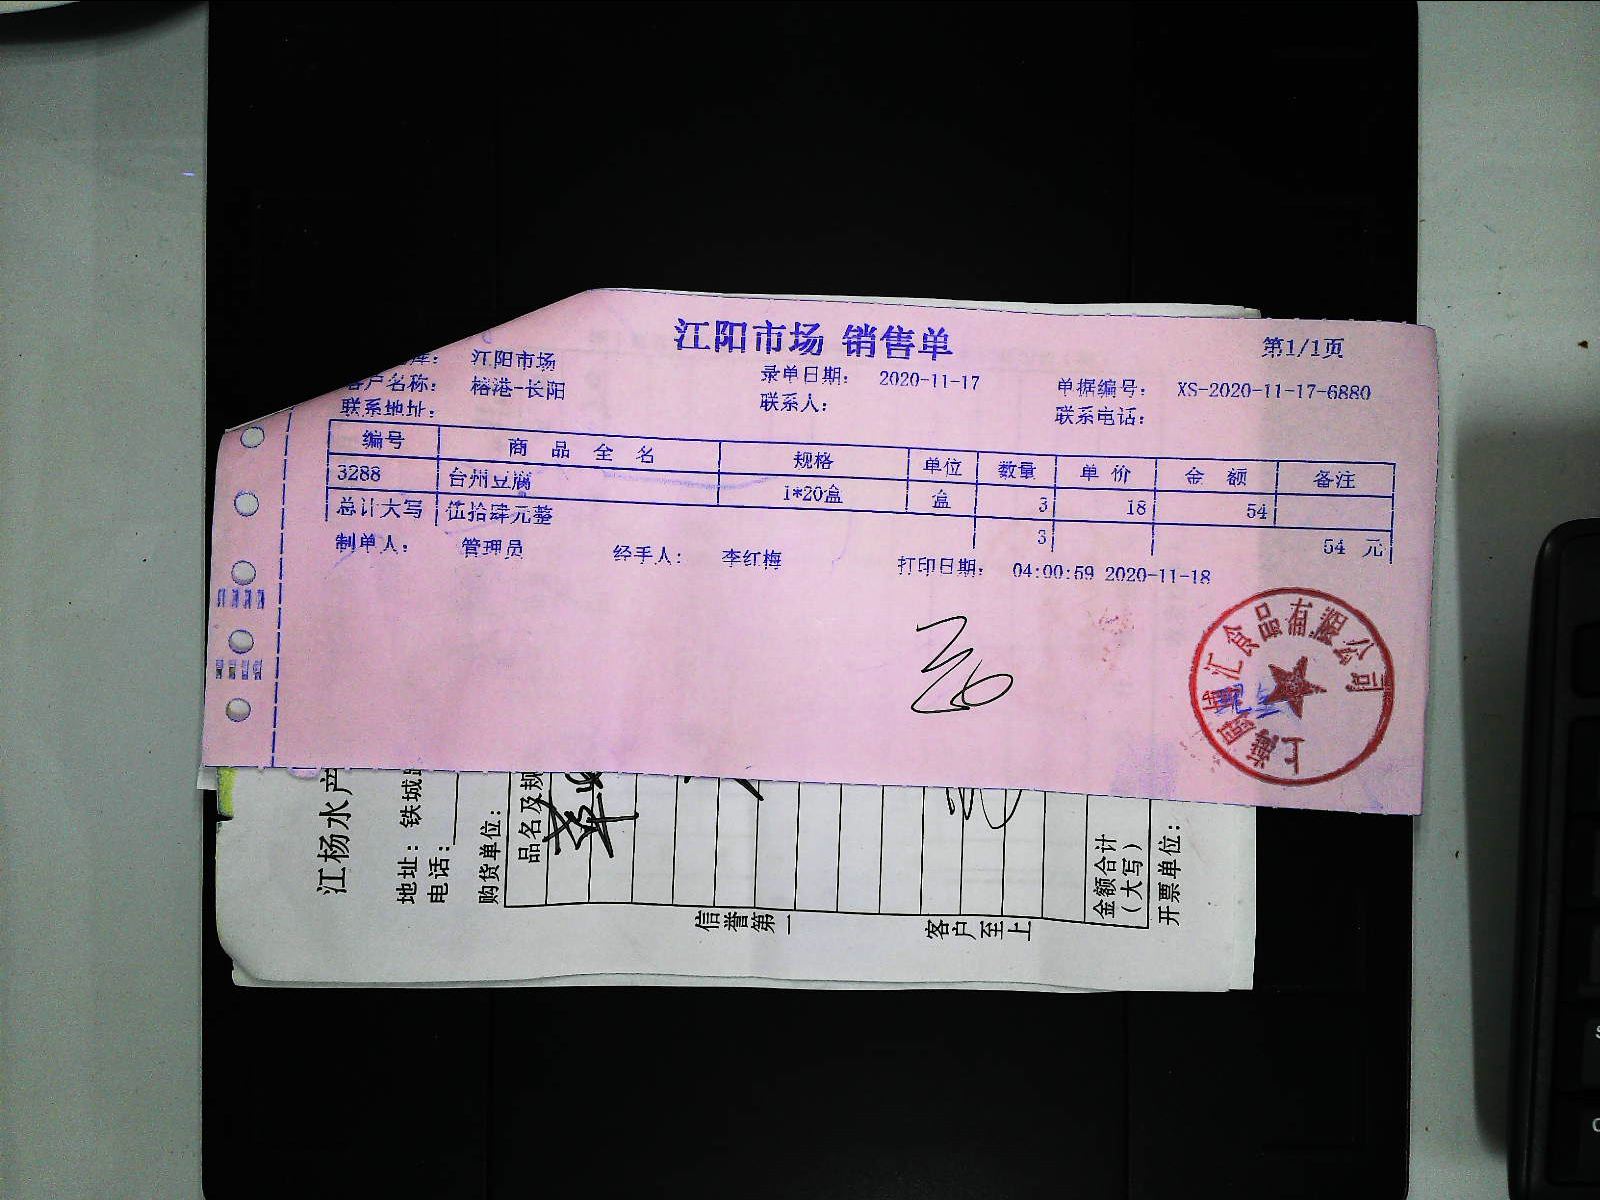 江阳市场 销售单
第1/1页
库： 江阳市场
客户名称： 榕港-长阳
录单日期： 2020-11-17
单据编号： XS-2020-11-17-6880
联系地址：
联系人：
联系电话：
编号 商品全名 规格 单位 数量 单价 金额 备注
3288 台州豆腐 1*20盒 盒 3 18 54
总计大写 伍拾肆元整 3 54 元
制单人： 管理员 经手人： 李红梅 打印日期： 04:00:59 2020-11-18
江杨水产
地址：铁城
电话：
购货单位：
品名及规
信誉第一
客户至上
金额合计
（大写）
开票单位：